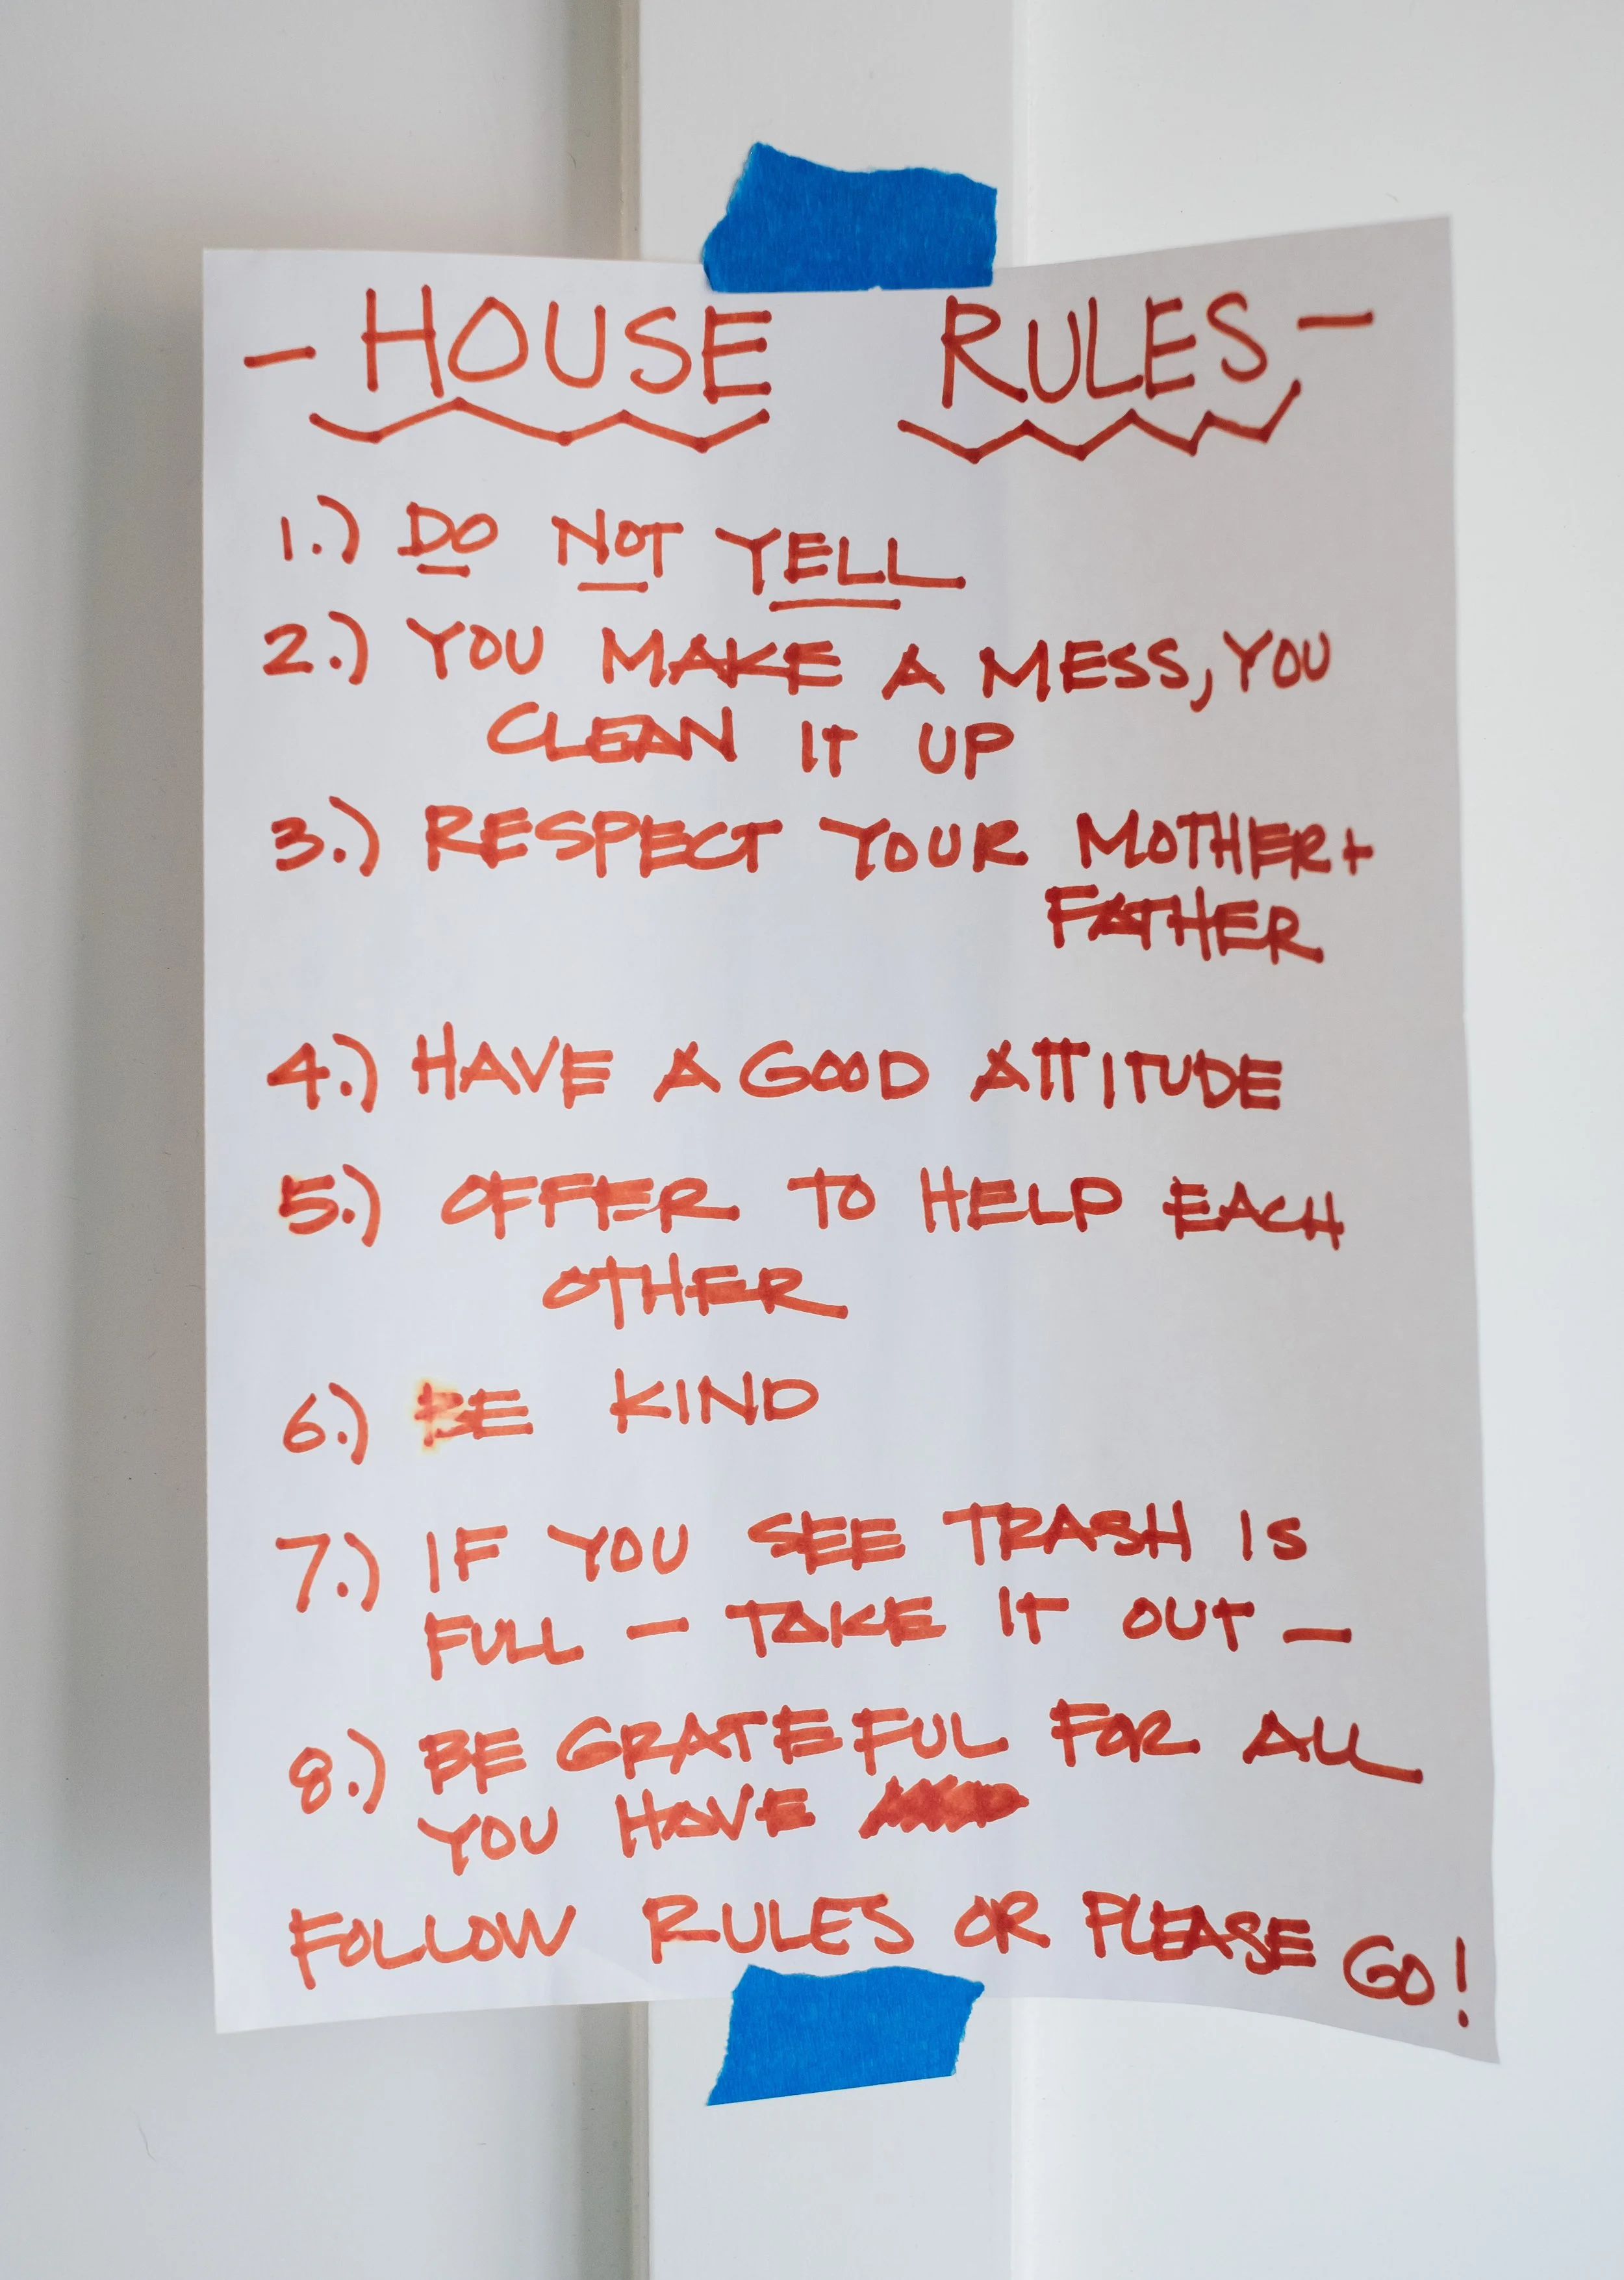 - HOUSE RULES -
1.) DO NOT YELL
2.) YOU MAKE A MESS, YOU
CLEAN IT UP
3.) RESPECT YOUR MOTHER +
FATHER
4.) HAVE A GOOD ATTITUDE
5.) OFFER TO HELP EACH
OTHER
6.) BE KIND
7.) IF YOU SEE TRASH IS
FULL - TAKE IT OUT -
8.) BE GRATEFUL FOR ALL
YOU HAVE
FOLLOW RULES OR PLEASE GO!